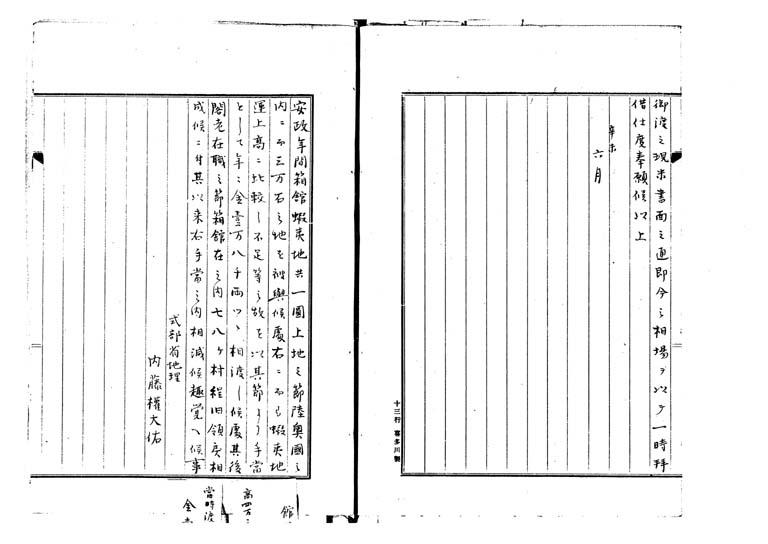 御渡之現米書面之通即今之相場ヲ以テ一時拜
借仕度奉願候以上
辛未
六月
十三行 喜多川製
安政年間箱館蝦夷地共一圓上地之節陸奥國之
内ニ而三万石之地を被與候處右ニ而も蝦夷地
運上高ニ比較し不足等之故を以其節より手當
として年ニ金壹万八千両ツヽ相渡し候處其後
閣老在職之節箱館在之内七八ヶ村程旧領戻相
成候ニ付其以来右手當之内相減候趣覚へ候事
式部省地理
内藤權大佑
館
高四万
當時渡
金